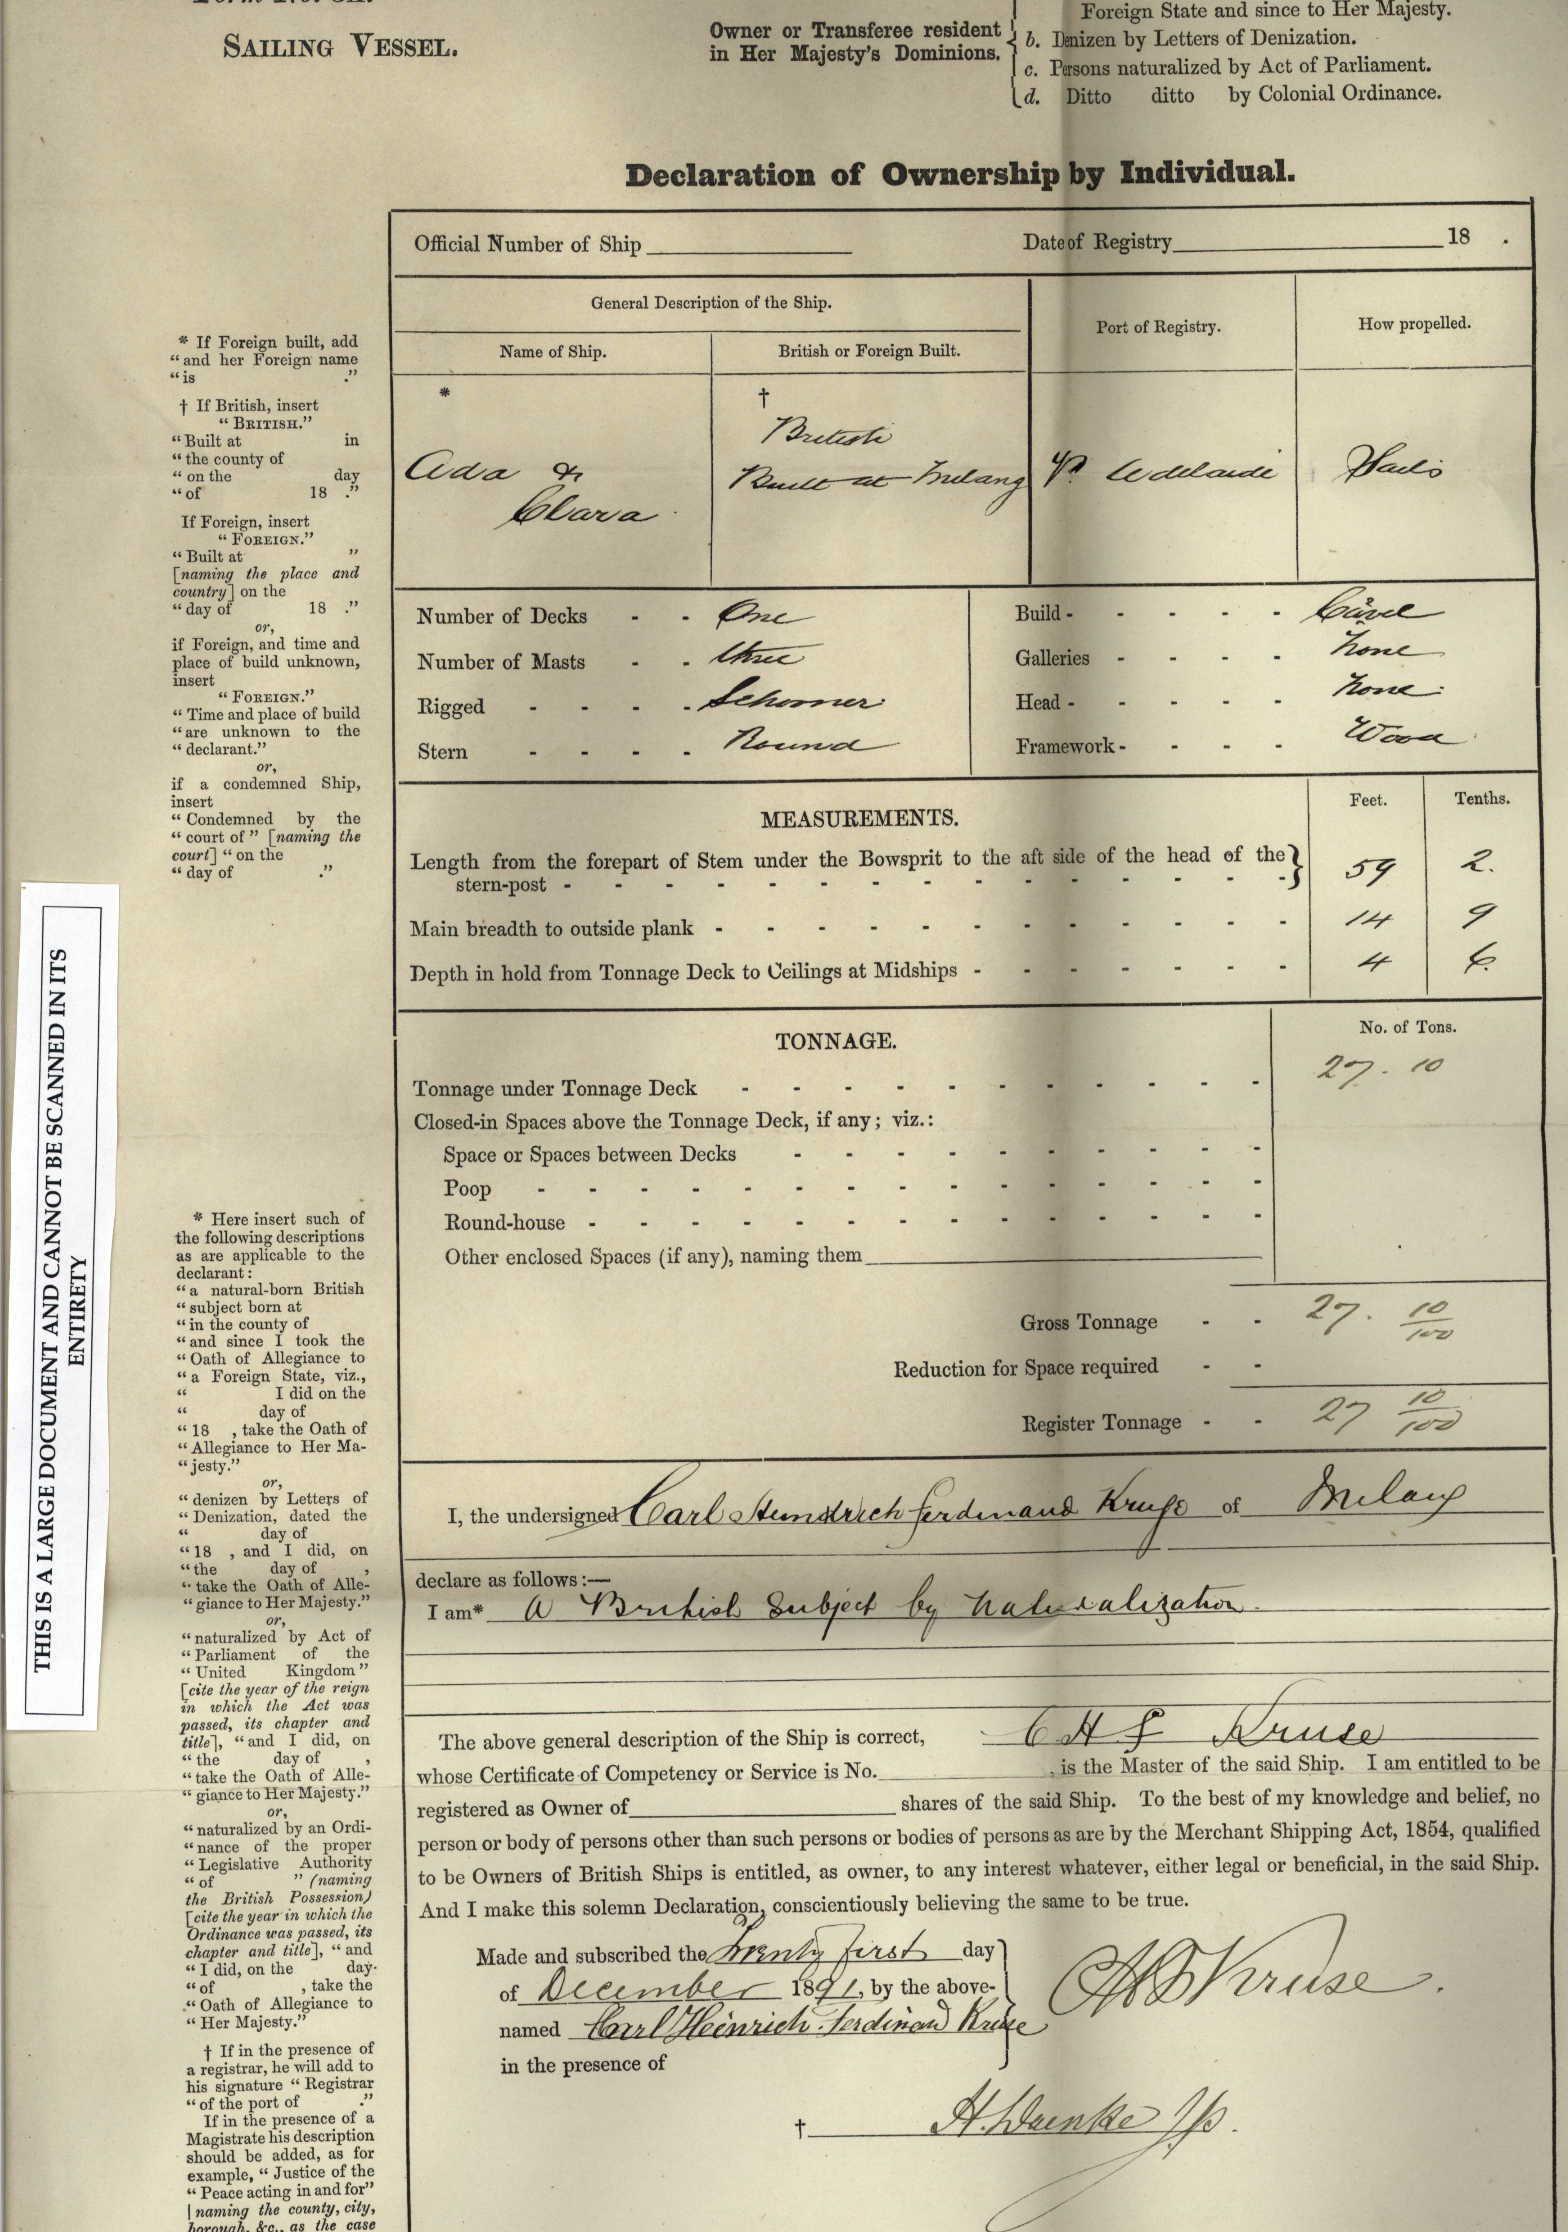 SAILING VESSEL.
Owner or Transferee resident
in Her Majesty's Dominions.
Foreign State and since to Her Majesty.
b. Denizen by Letters of Denization.
c. Persons naturalized by Act of Parliament.
d. Ditto ditto by Colonial Ordinance.
Declaration of Ownership by Individual.
Official Number of Ship
Date of Registry 18 .
General Description of the Ship.
Port of Registry.
How propelled.
Name of Ship.
British or Foreign Built.
*
†
British
Ada &
Clara
Built at Milang
Pt Adelaide
Sails
Number of Decks - - One
Number of Masts - - three
Rigged - - - - Schooner
Stern - - - - Round
Build - - - - - Carvel
Galleries - - - - None
Head - - - - - None
Framework - - - - Wood
MEASUREMENTS.
Feet.
Tenths.
Length from the forepart of Stem under the Bowsprit to the aft side of the head of the
stern-post - 59 2.
Main breadth to outside plank - 14 9
Depth in hold from Tonnage Deck to Ceilings at Midships - 4 6.
TONNAGE.
No. of Tons.
Tonnage under Tonnage Deck - 27. 10
Closed-in Spaces above the Tonnage Deck, if any; viz.:
Space or Spaces between Decks
Poop
Round-house
Other enclosed Spaces (if any), naming them
Gross Tonnage - - 27. 10/100
Reduction for Space required - -
Register Tonnage - - 27 10/100
I, the undersigned Carl Heindrich Ferdinand Kruse of Milang
declare as follows:—
I am* a British Subject by Naturalization
The above general description of the Ship is correct, C H F Kruse
whose Certificate of Competency or Service is No. , is the Master of the said Ship. I am entitled to be
registered as Owner of shares of the said Ship. To the best of my knowledge and belief, no
person or body of persons other than such persons or bodies of persons as are by the Merchant Shipping Act, 1854, qualified
to be Owners of British Ships is entitled, as owner, to any interest whatever, either legal or beneficial, in the said Ship.
And I make this solemn Declaration, conscientiously believing the same to be true.
Made and subscribed the Twenty first day
of December 1891, by the above-
named Carl Heinrich Ferdinand Kruse
in the presence of
CHF Kruse.
† H. Daenke Jp.
* If Foreign built, add
"and her Foreign name
"is ."
† If British, insert
"BRITISH."
"Built at in
"the county of
"on the day
"of 18 ."
If Foreign, insert
"FOREIGN."
"Built at "
[naming the place and
country] on the
"day of 18 ."
or,
if Foreign, and time and
place of build unknown,
insert
"FOREIGN."
"Time and place of build
"are unknown to the
"declarant."
or,
if a condemned Ship,
insert
"Condemned by the
"court of" [naming the
court] "on the
"day of ."
THIS IS A LARGE DOCUMENT AND CANNOT BE SCANNED IN ITS
ENTIRETY
* Here insert such of
the following descriptions
as are applicable to the
declarant:
"a natural-born British
"subject born at
"in the county of
"and since I took the
"Oath of Allegiance to
"a Foreign State, viz.,
" I did on the
" day of
"18 , take the Oath of
"Allegiance to Her Ma-
"jesty."
or,
"denizen by Letters of
"Denization, dated the
" day of
"18 , and I did, on
"the day of ,
"take the Oath of Alle-
"giance to Her Majesty."
or,
"naturalized by Act of
"Parliament of the
"United Kingdom"
[cite the year of the reign
in which the Act was
passed, its chapter and
title], "and I did, on
"the day of ,
"take the Oath of Alle-
"giance to Her Majesty."
or,
"naturalized by an Ordi-
"nance of the proper
"Legislative Authority
"of " (naming
the British Possession)
[cite the year in which the
Ordinance was passed, its
chapter and title], "and
"I did, on the day
"of , take the
"Oath of Allegiance to
"Her Majesty."
† If in the presence of
a registrar, he will add to
his signature "Registrar
"of the port of ."
If in the presence of a
Magistrate his description
should be added, as for
example, "Justice of the
"Peace acting in and for"
[naming the county, city,
borough, &c., as the case